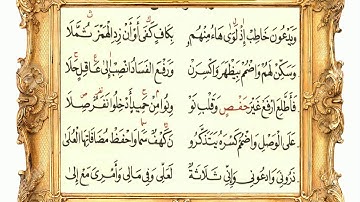 وَيَدْعُونَ خَاطِبْ إِذْ لَوَى هَاءُ مِنْهُمُ بِكَافٍ كَفَى أَوْ أَنْ زِدِ الْهَمْزَ ثُمَّلَا
وَسَكِّنْ لَهُمْ وَاضْمُمْ بِيَظْهَرَ وَاكْسِرَنْ وَرَفْعَ الْفَسَادَ انْصِبْ إِلَى عَاقِلٍ حَلَا
فَأَطَّلِعَ ارْفَعْ غَيْرَ حَفْصٍ وَقَلْبِ نَوْ وِنُوا مِنْ حَمِيدٍ أَدْخِلُوا نَفَرٌ صِلَا
عَلَى الْوَصْلِ وَاضْمُمْ كَسْرَهُ يَتَذَكَّرُو نَ كَهْفٌ سَمَا وَاحْفَظْ مُضَافَاتِهَا الْعُلَى
ذَرُونِي وَادْعُونِي وَإِنِّي ثَلَاثَةٌ لَعَلِّي وَفِي مَالِي وَأَمْرِي مَعْ إِلَى